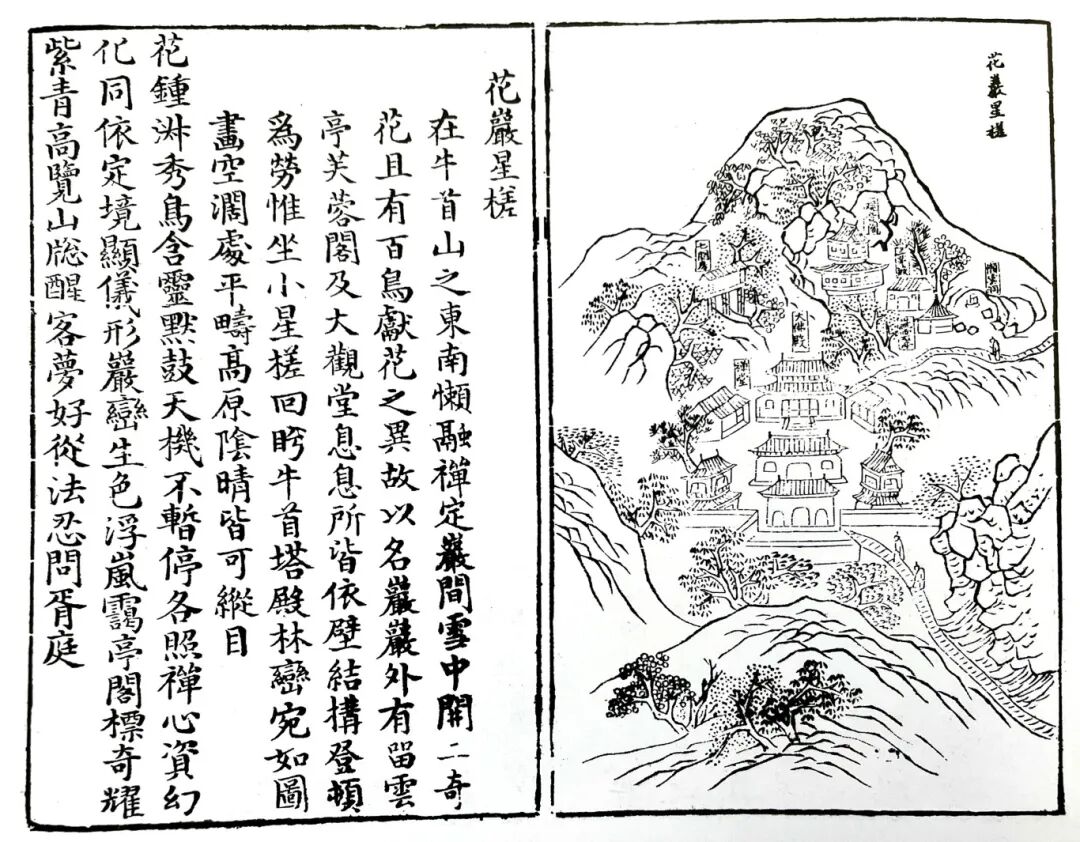 花巖星槎
大佛殿
禪堂
花巖星槎
在牛首山之東南懶融禪定巖間雪中開二奇
花且有百鳥獻花之異故以名巖巖外有留雲
亭芙蓉閣及大觀堂息息所皆依壁結搆登頓
爲勞惟坐小星槎回眄牛首塔殿林巒宛如圖
畫空濶處平疇高原陰晴皆可縱目
花鍾淑秀鳥含靈默鼓天機不暫停各照禪心資幻
化同依定境顯儀形巖巒生色浮嵐靄亭閣標奇耀
紫青高覽山牕醒客夢好從法忍問胥庭